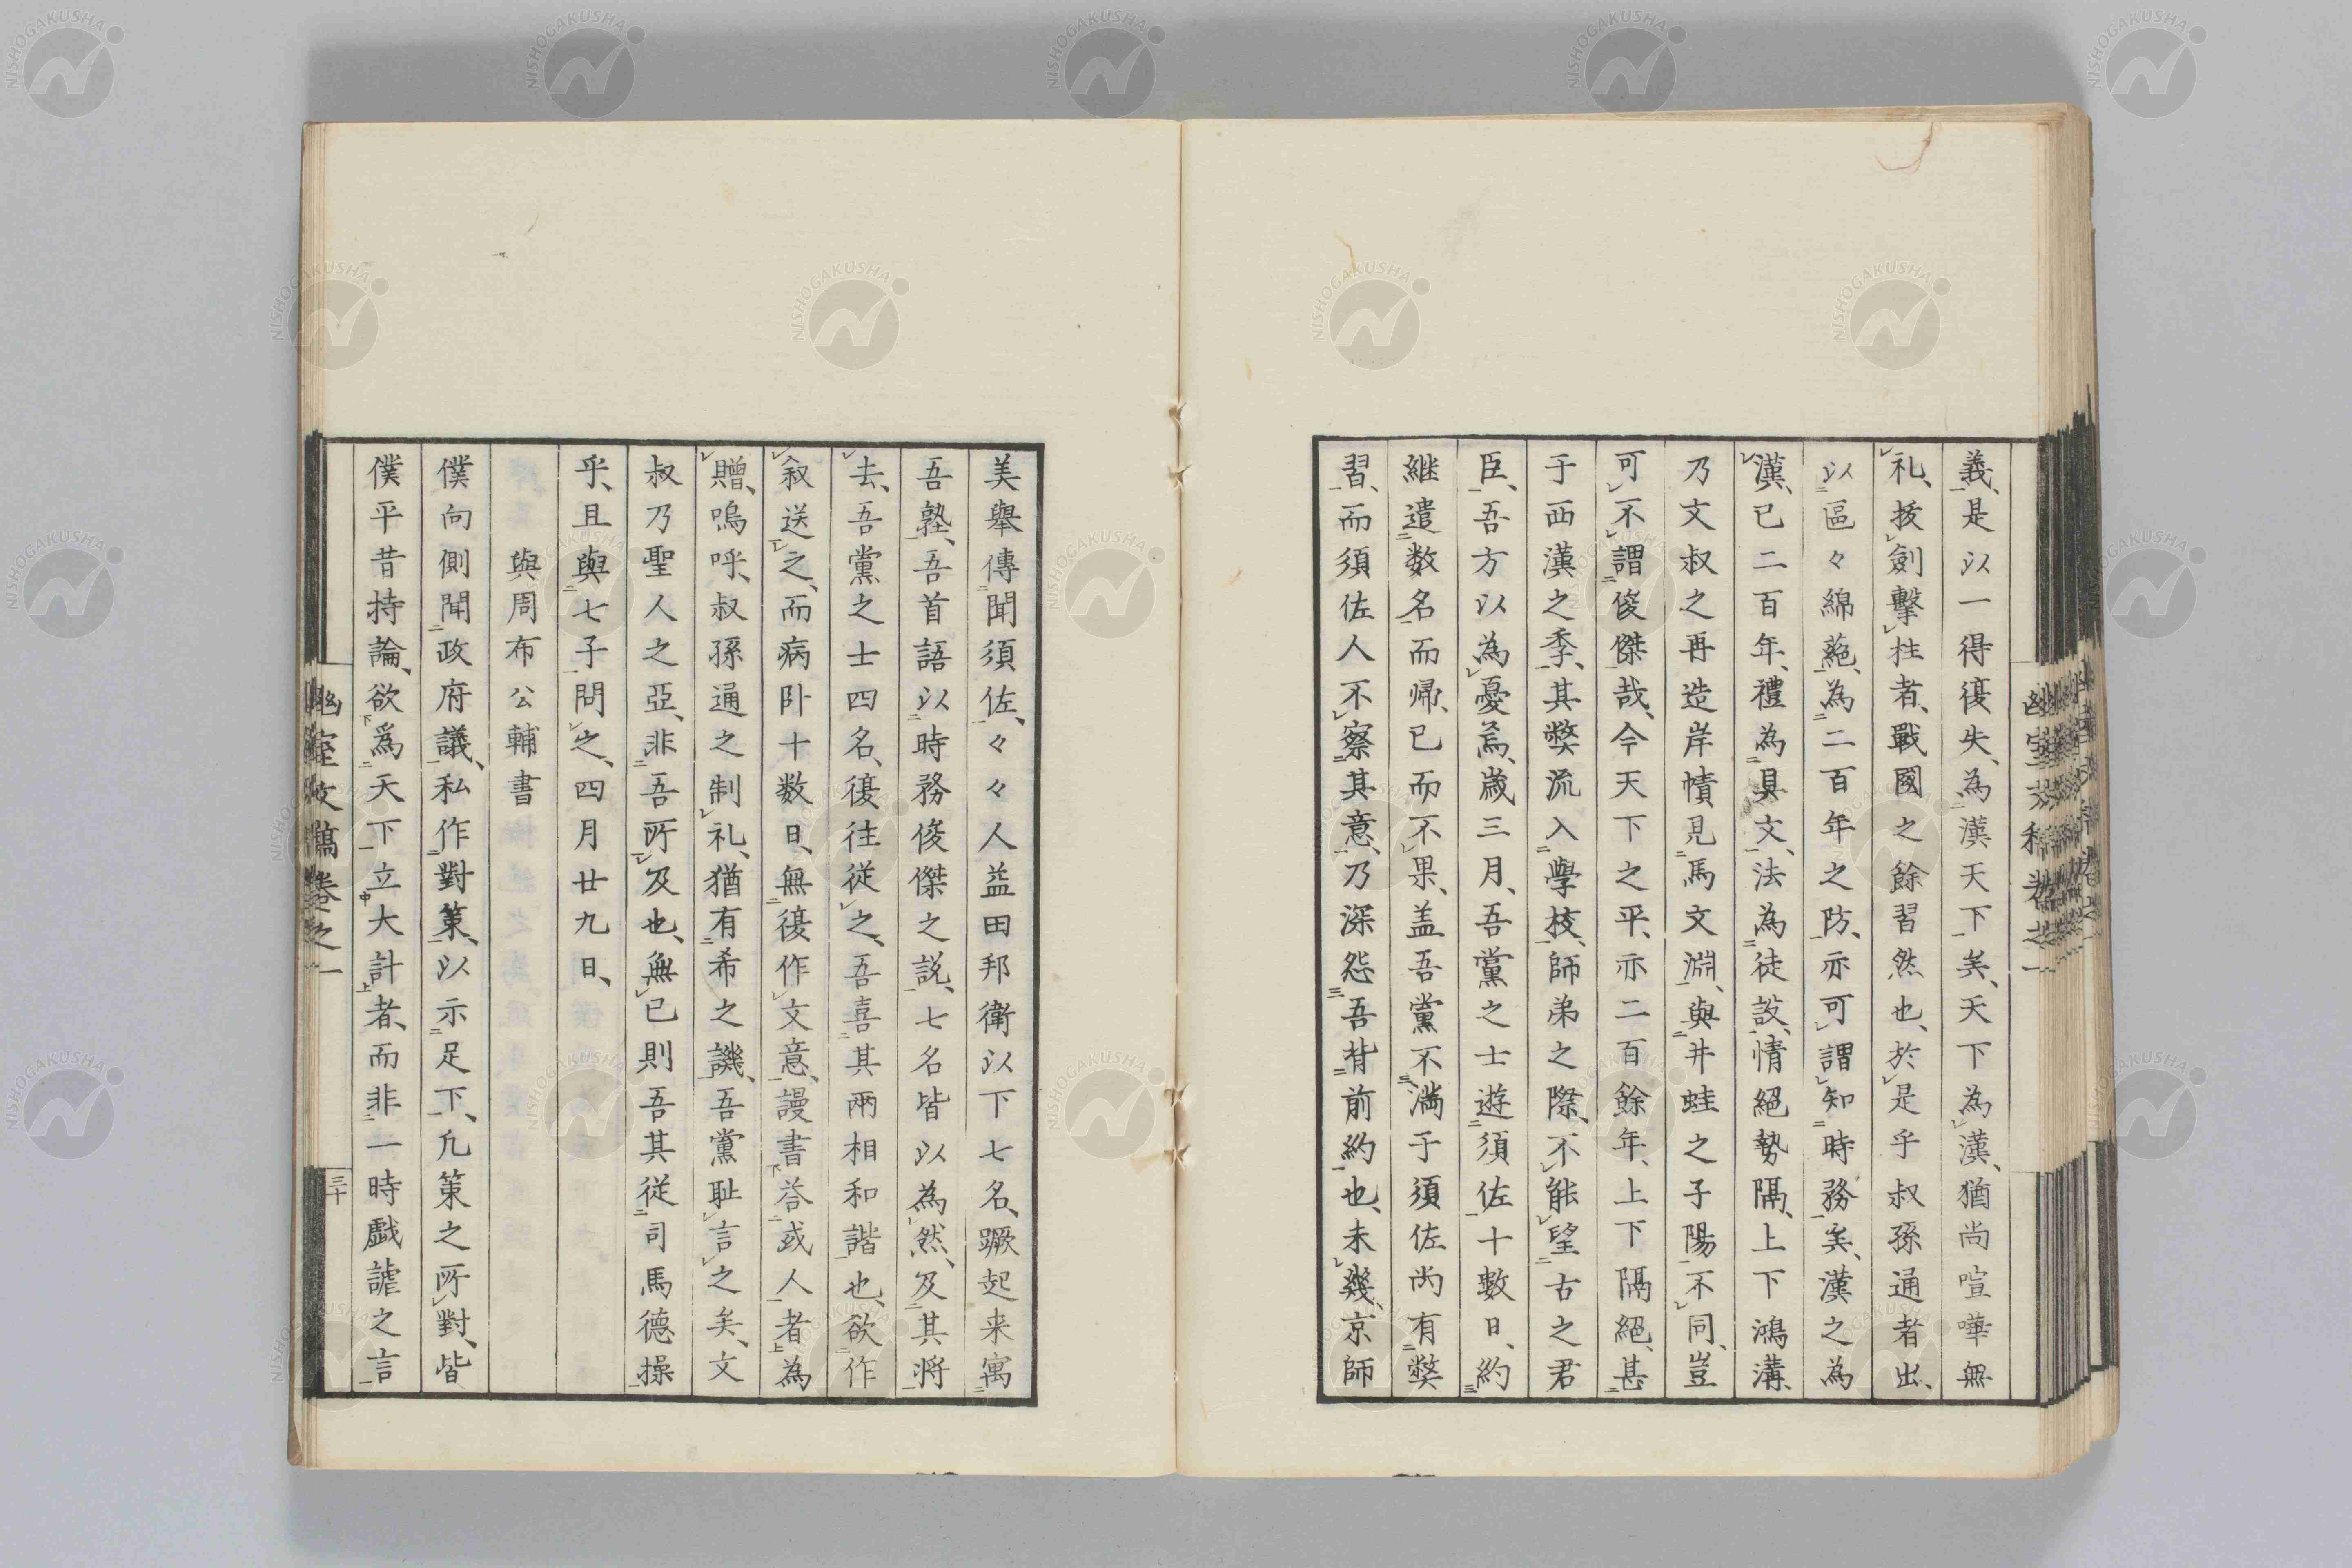 義、是以一得復失、為漢天下矣、天下為漢、猶尚喧嘩無
礼、拔劍擊柱者、戰國之餘習然也、於是乎叔孫通者出、
以區々綿蕝、為二百年之防、亦可謂知時務矣、漢之為
漢、已二百年、禮為具文、法為徒設、情絕勢隔、上下鴻溝、
乃文叔之再造岸幘見馬文淵、與井蛙之子陽不同、豈
可不謂俊傑哉、今天下之平、亦二百餘年、上下隔絕、甚
于西漢之季、其獘流入學校、師弟之際、不能望古之君
臣、吾方以為憂焉、歲三月、吾黨之士遊須佐十數日、約
継遣数名而帰、已而不果、盖吾黨不満于須佐尚有獘
習、而須佐人不察其意、乃深怨吾背前約也、未幾、京師
美舉傳聞須佐、々々人益田邦衛以下七名、蹶起来寓
吾塾、吾首語以時務俊傑之説、七名皆以為然、及其将
去、吾黨之士四名、復往従之、吾喜其兩相和諧也、欲作
叙送之、而病卧十数日、無復作文意、謾書荅或人者為
贈、嗚呼、叔孫通之制礼、猶有希之譏、吾黨耻言之矣、文
叔乃聖人之亞、非吾所及也、無已則吾其従司馬德操
乎、且與七子問之、四月廿九日、
與周布公輔書
僕向側聞政府議、私作對策、以示足下、凡策之所對、皆
僕平昔持論、欲爲天下立大計者、而非一時戯謔之言
幽室文稿卷之一
三十